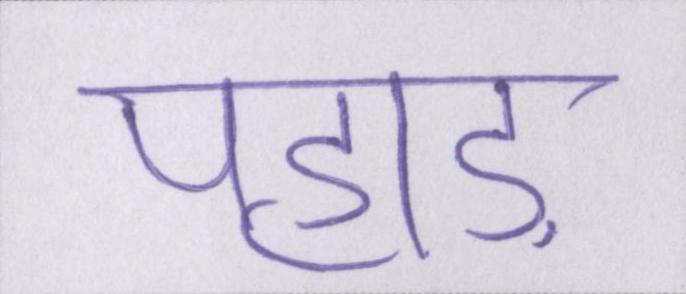 पहाड़